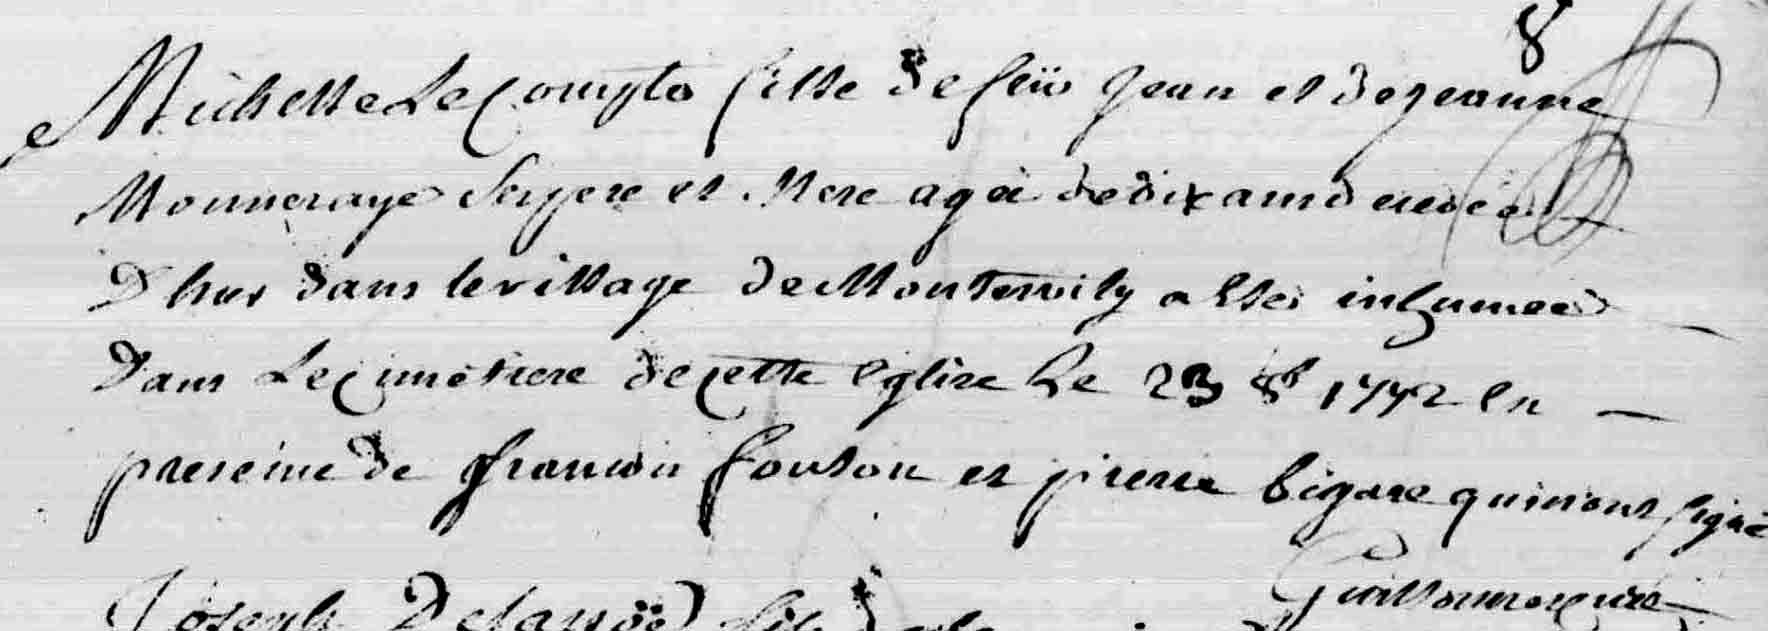 8
Michelle Le Compte fille de feü Jean et de jeanne
Monneraye Ses pere et Mere agée de dix ans decedée
D'hier dans le village de Montervily a Eté inhumée
Dans Le Cimetiere de Cette Eglise Le 23 8b 1772 En
presence de francois foulon et pierre bigare qui n'ont signé
Guillou recteur
Joseph fils de